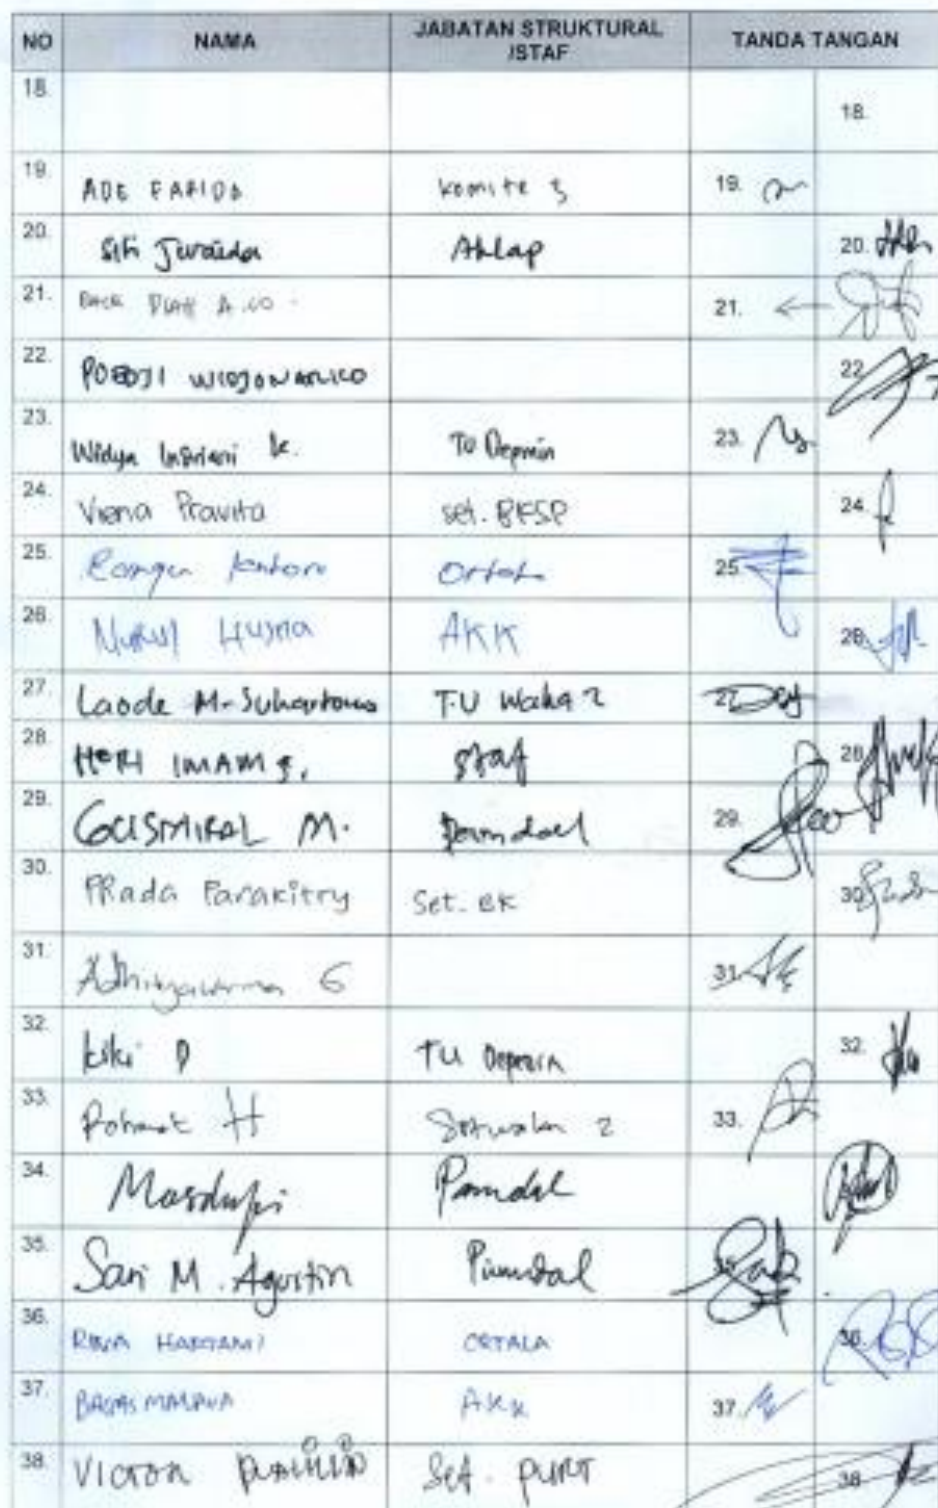 NO NAMA JABATAN STRUKTURAL /STAF TANDA TANGAN
18. 18.
19. ADE FARIDA Komite 3 19.
20. Siti Juraida Ahlap 20.
21. 21.
22. POEDJI WIDJONARKO 22.
23. Widya K. TU Depmin 23.
24. Viena Pravita set. BKSP 24.
25. 25.
26. Nurul Husna AKK 26.
27. Laode M. Suhartono T.U Waka 2 27.
28. HERI IMAM S. Staf 28.
29. GUSMIRAL M. Pamdal 29.
30. Prada Parakitry Set. BK 30.
31. 6 31.
32. kiki D TU Depmin 32.
33. Rohmat H 2 33.
34. Pamdal
35. Sari M. Agustin Pamdal
36. HARTAMI ORTALA 36.
37. BAGAS MALANA AKK 37.
38. VICTOR Set. PURT 38